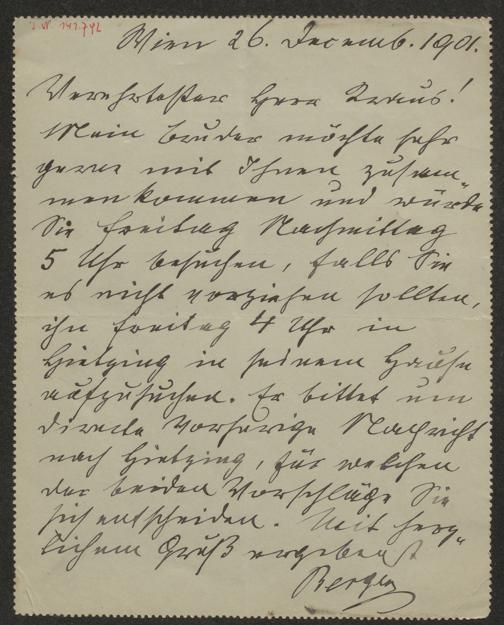 I.N. 141.742
Wien 26. Decemb. 1901.
Verehrtester Herr Kraus!
Mein Bruder möchte sehr
gerne mit Ihnen zusam„
menkommen und würde
Sie Freitag Nachmittag
5 Uhr besuchen, falls Sie
es nicht vorziehen sollten,
ihn Freitag 4 Uhr in
Hietzing in seinem Hause
aufzusuchen. Er bittet um
directe vorherige Nachricht
nach Hietzing, für welchen
der beiden Vorschläge Sie
sich entscheiden. Mit herz„
lichem Gruß ergebenst
Berger